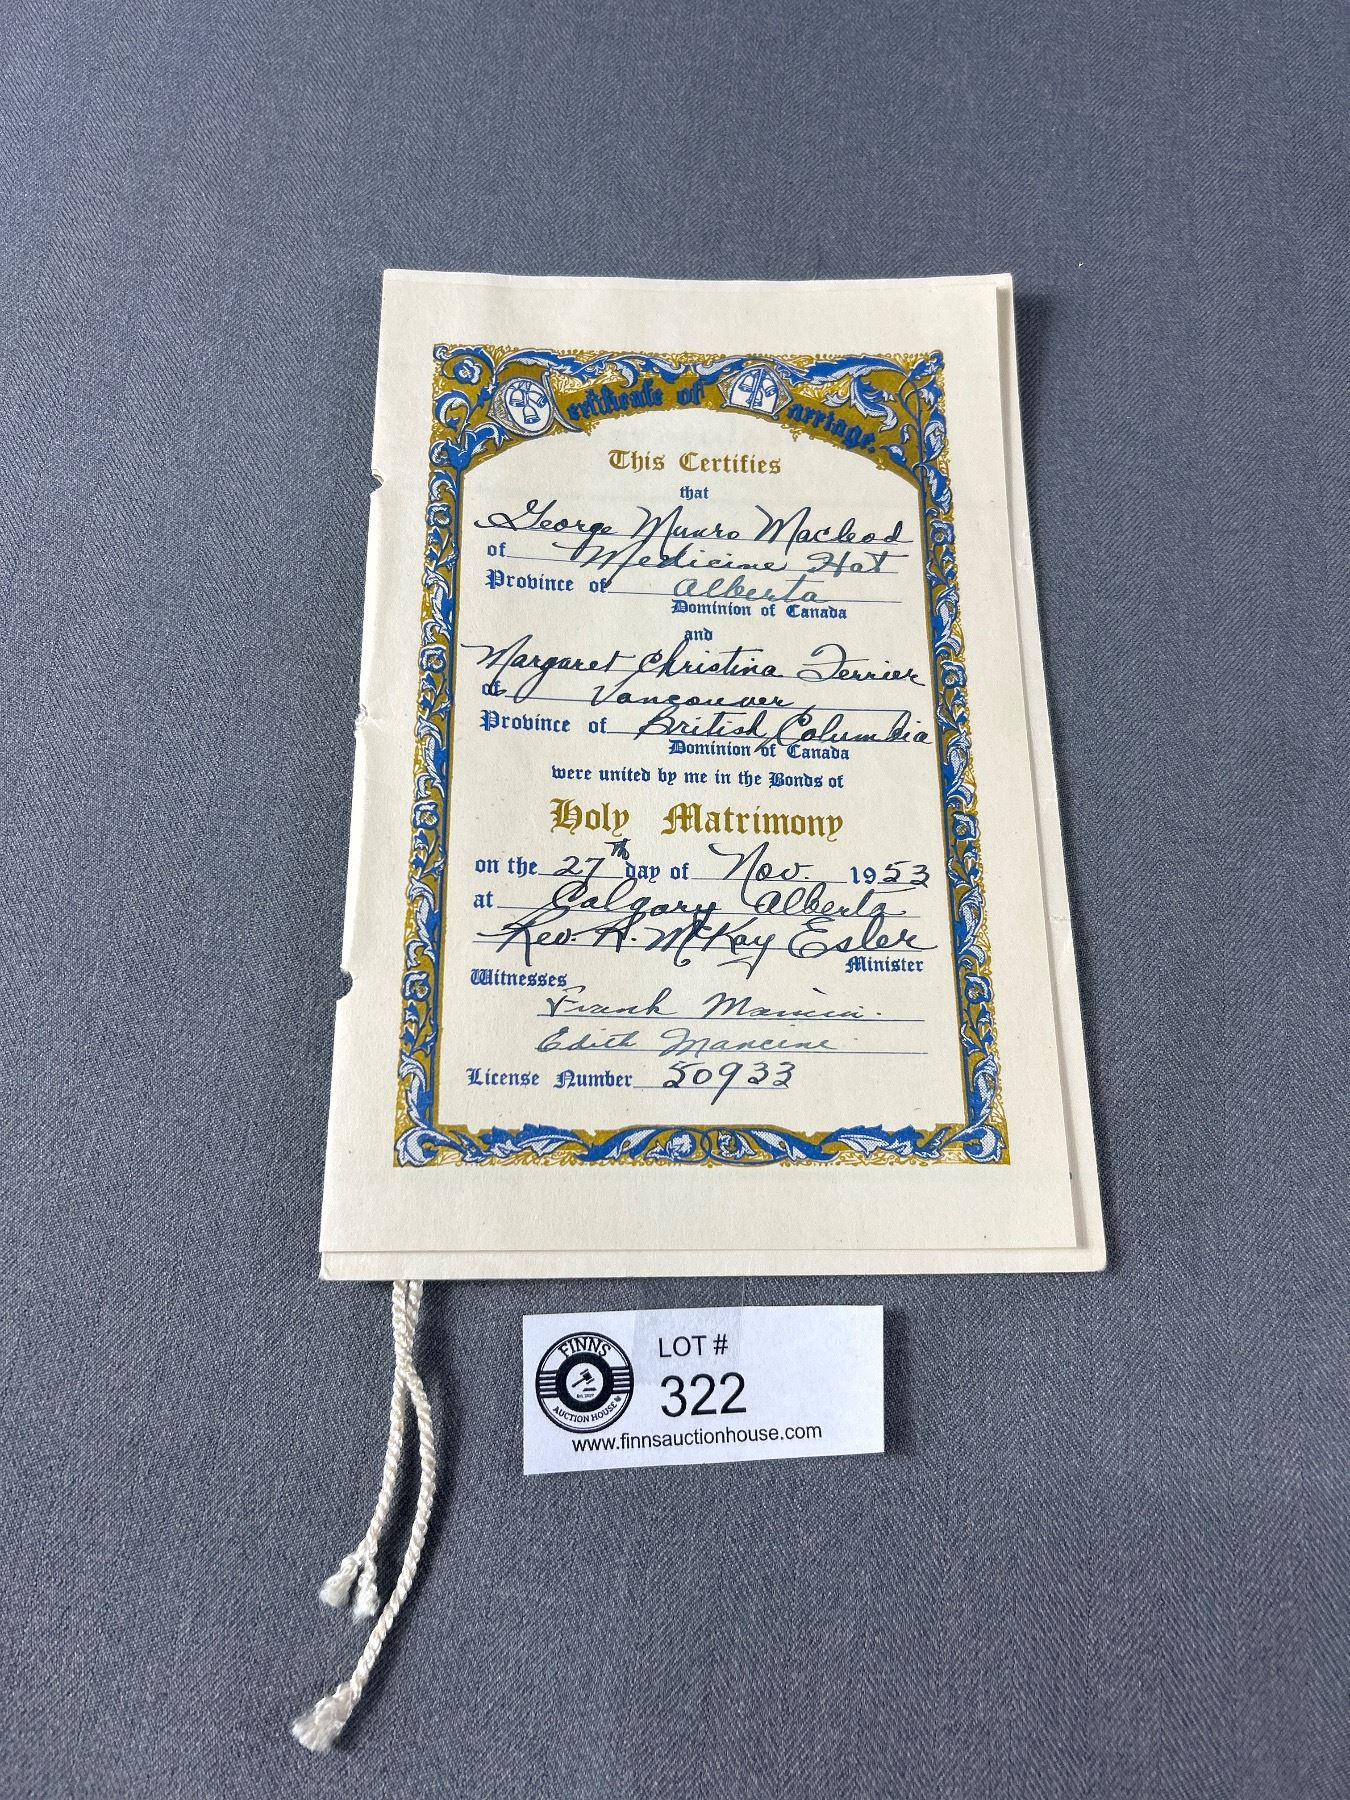 Certificate of Marriage.
This Certifies
that
George Munro Macleod
of Medicine Hat
Province of Alberta
Dominion of Canada
and
Margaret Christina Ferrier
of Vancouver
Province of British Columbia
Dominion of Canada
were united by me in the Bonds of
Holy Matrimony
on the 27th day of Nov. 1953
at Calgary Alberta
Rev. H. McKay Esler
Minister
Witnesses
Frank
Edith Mancini
License Number 50933
FINNS
AUCTION HOUSE
LOT #
322
www.finnsauctionhouse.com